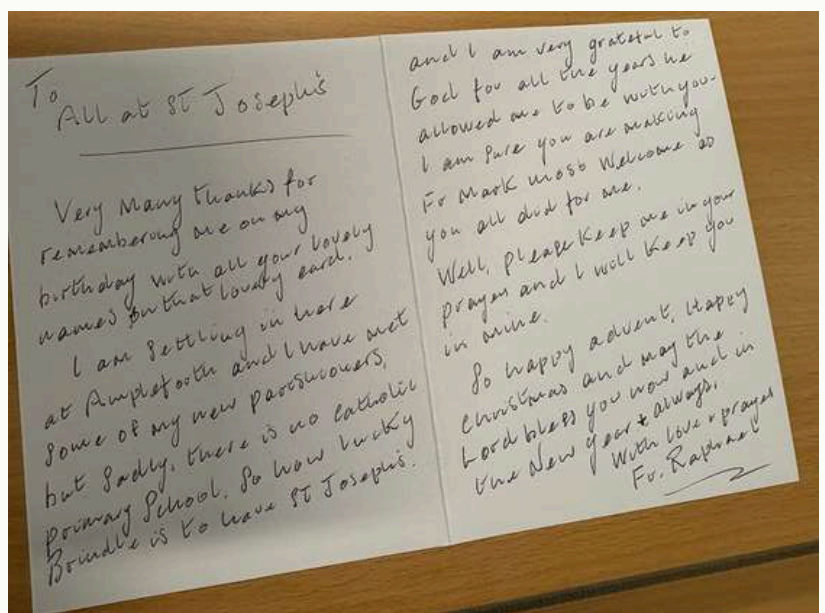 To
All at St Joseph's
Very Many thanks for
remembering me on my
birthday with all your lovely
names on that lovely card.
I am settling in here
at Ampleforth and I have met
some of my new parishioners,
but sadly, there is no catholic
primary School. So how lucky
Brindle is to have St Joseph's.
and I am very grateful to
God for all the years he
allowed me to be with you.
I am sure you are making
Fr Mark most Welcome as
you all did for me.
Well, please keep me in your
prayer and I will keep you
in mine.
So happy advent, Happy
Christmas and may the
Lord bless you now and in
the New Year + always.
With love + prayer
Fr. Raphael